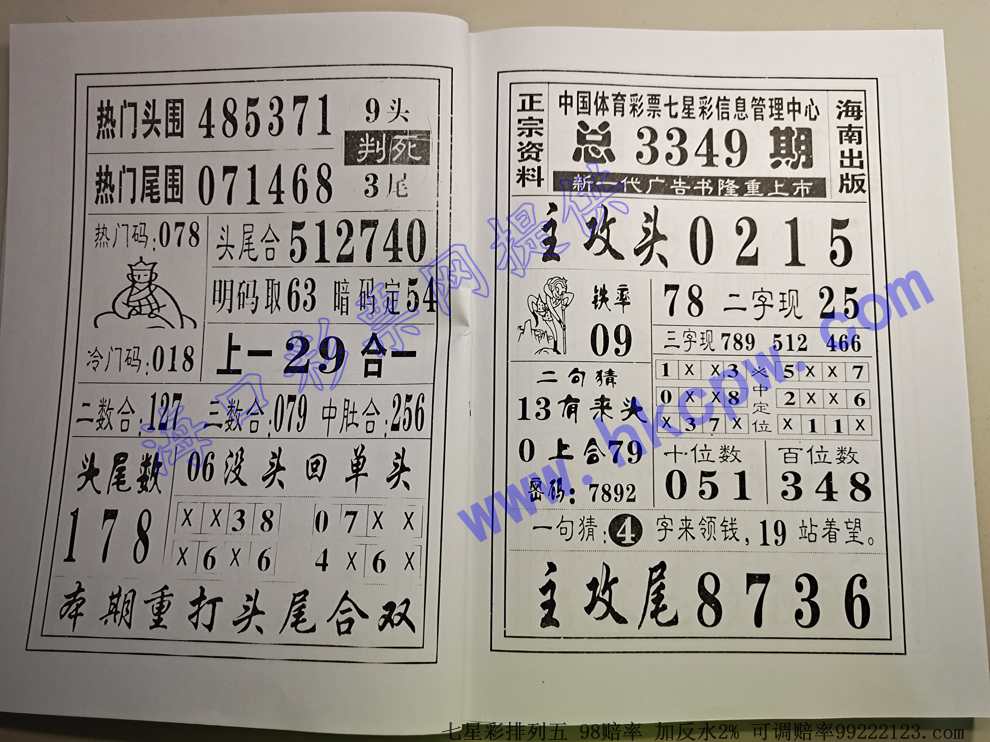 热门头围 485371
9头
判死
3尾
热门尾围 071468
热门码:078
头尾合 512740
明码取63 暗码定54
冷门码:018
上一29合一
二数合:127 三数合:079 中肚合:256
头尾数
178
06没头回单头
××38 07××
×6×6 4×6×
本期重打头尾合双
正宗资料
中国体育彩票七星彩信息管理中心
总3349期
新一代广告书隆重上市
海南出版
主攻头0215
铁率
09
78 二字现 25
三字现 789 512 466
二句猜
13有来头
0上合79
密码:7892
1××3 5××7
0××8 2××6
×37× ×11×
中定位
十位数
051
百位数
348
一句猜:4字来领钱,19站着望。
主攻尾8736
海口彩票网提供
www.hkcpw.com
七星彩排列五 98赔率 加反水2% 可调赔率99222123.com